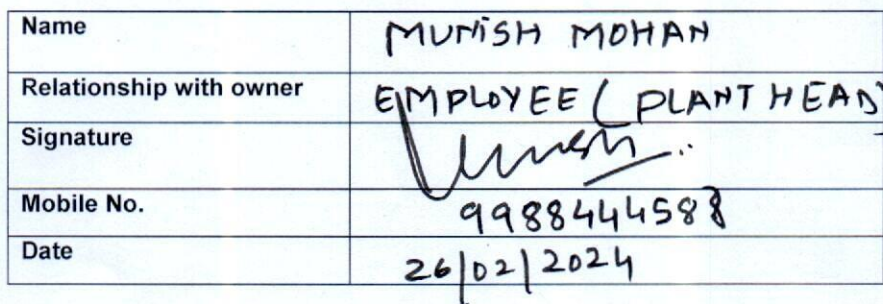 Name MUNISH MOHAN
Relationship with owner EMPLOYEE (PLANT HEAD)
Signature
Mobile No.
Date 26/02/2024